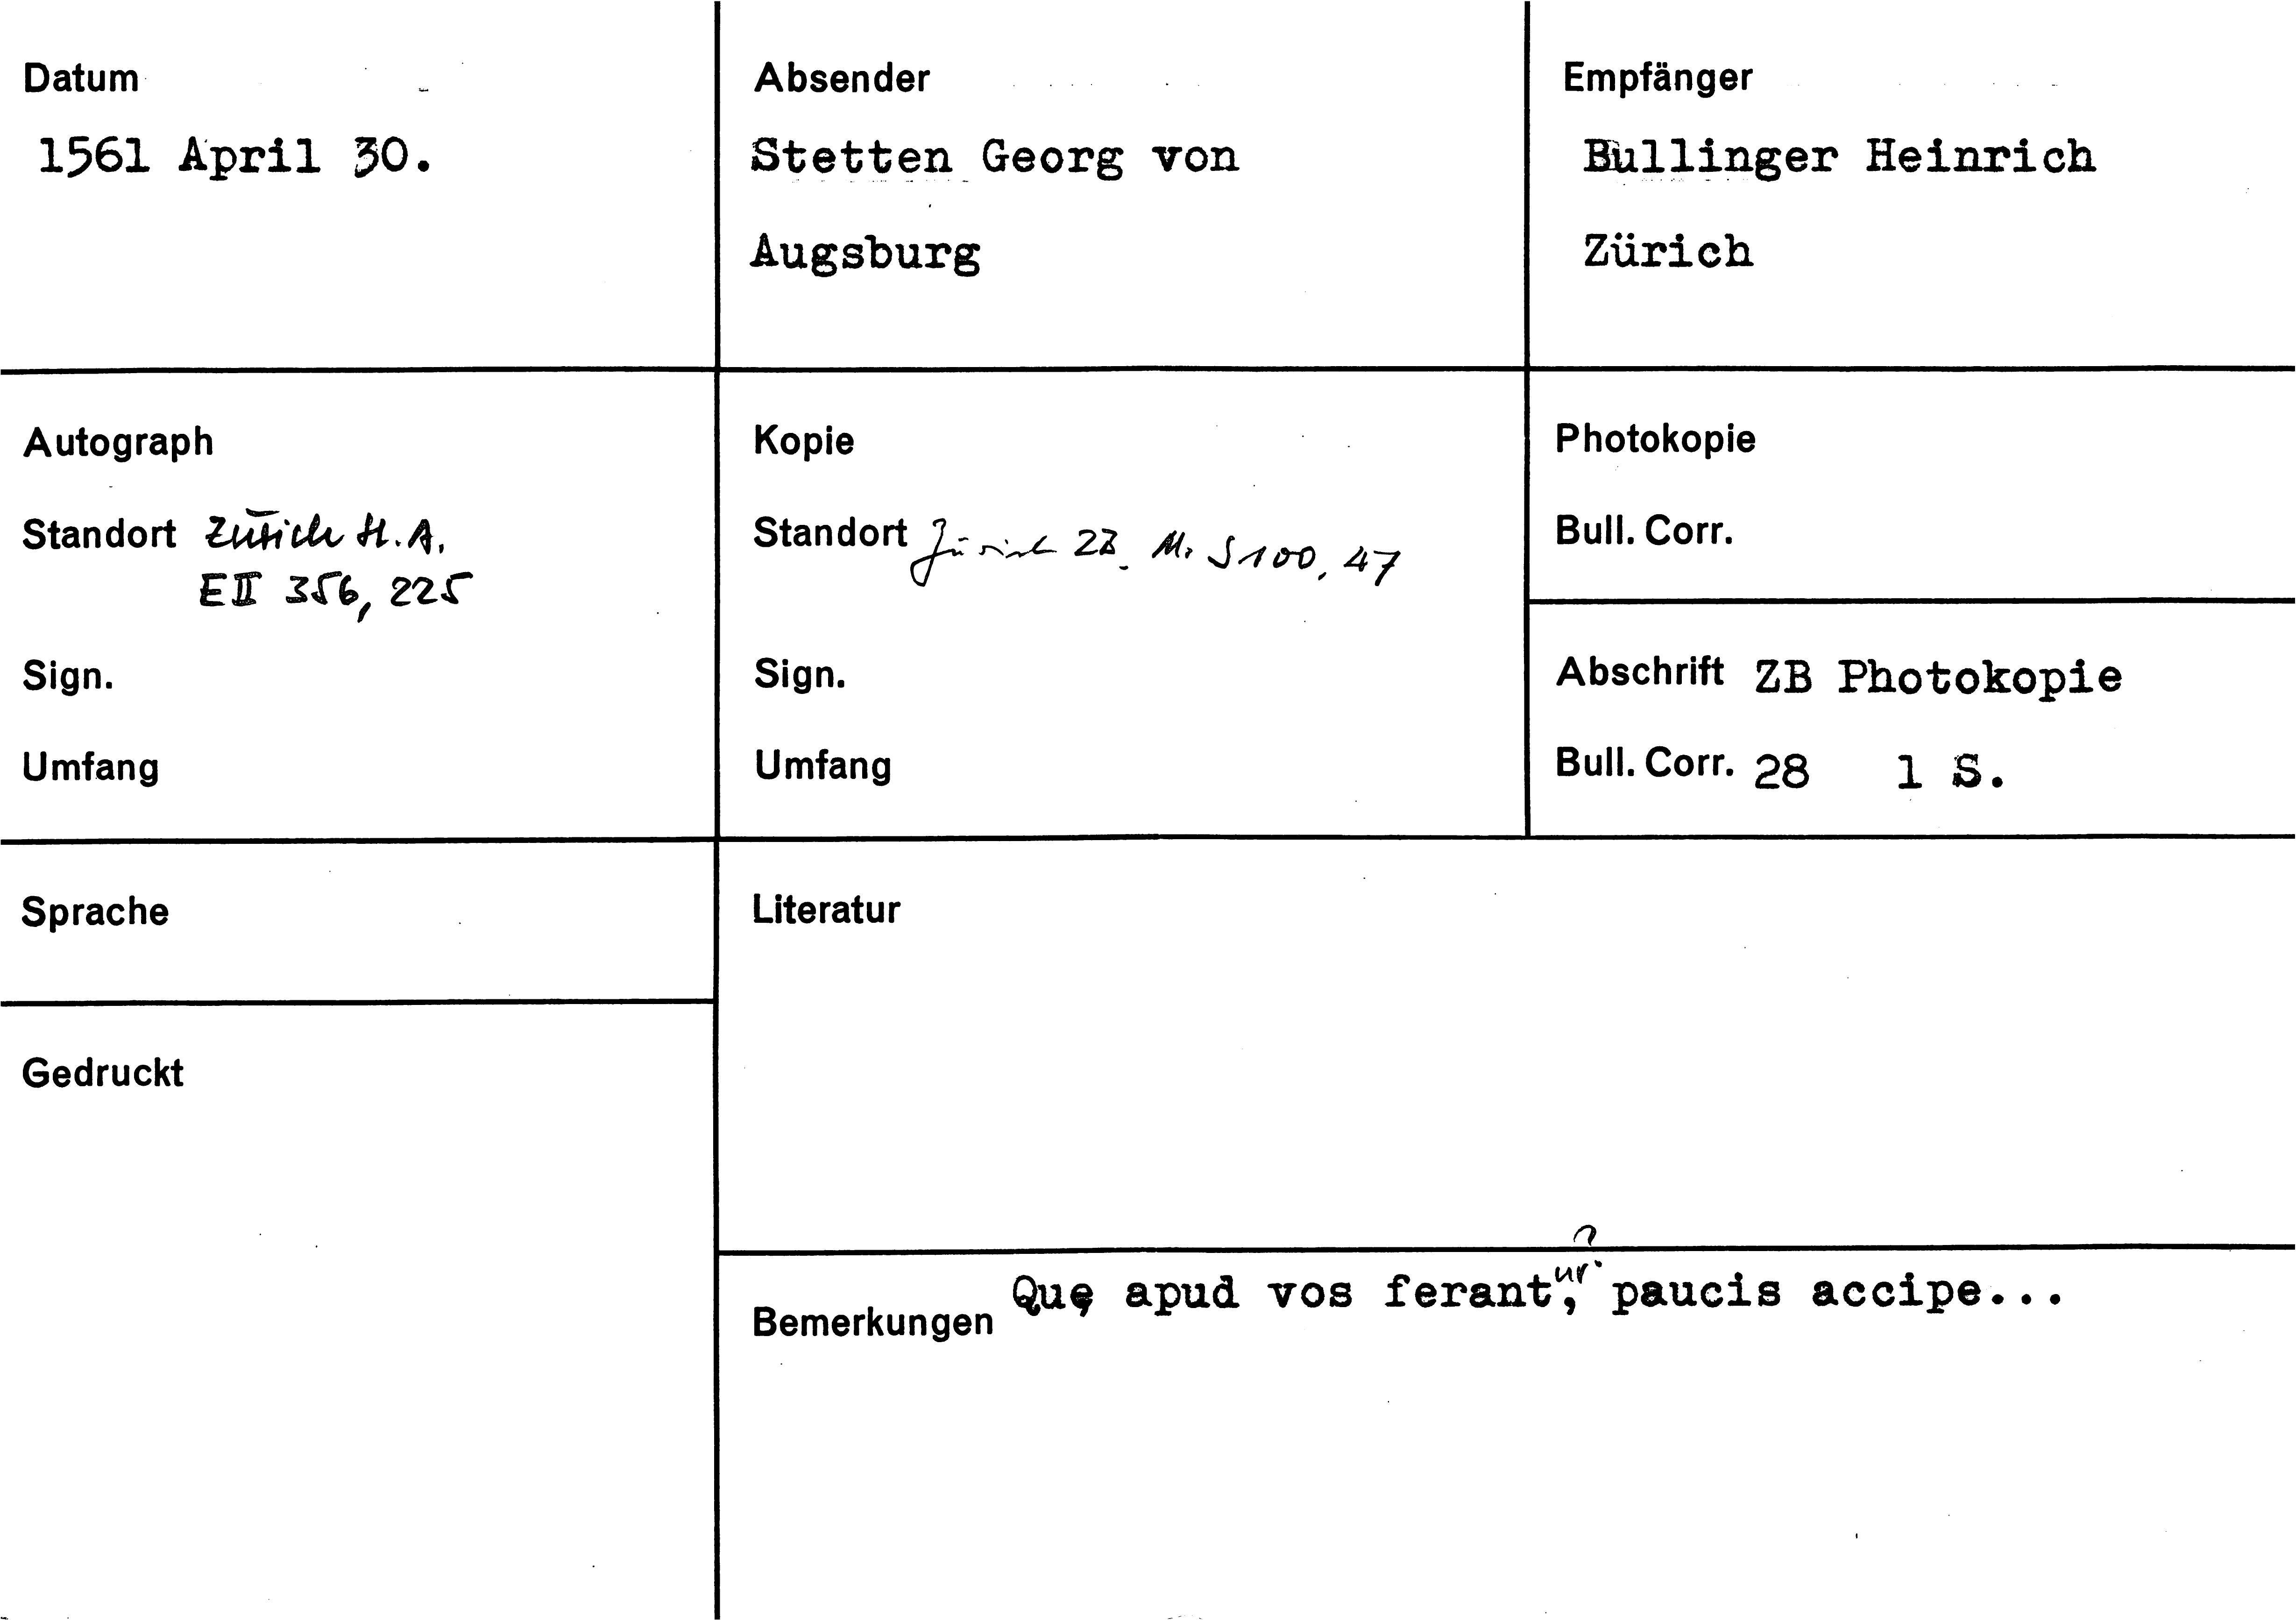 Datum
1561 April 30.
Absender
Stetten Georg von
Augsburg
Empfänger
Bullinger Heinrich
Zürich
Autograph
Standort Zürich St.A.
E II 356, 225
Sign.
Umfang
Kopie
Standort Zürich ZB. Ms S 100, 47
Sign.
Umfang
Photokopie
Bull. Corr.
Abschrift ZB Photokopie
Bull. Corr. 28 1 S.
Sprache
Gedruckt
Literatur
?
Bemerkungen Quę apud vos ferantur, paucis accipe...